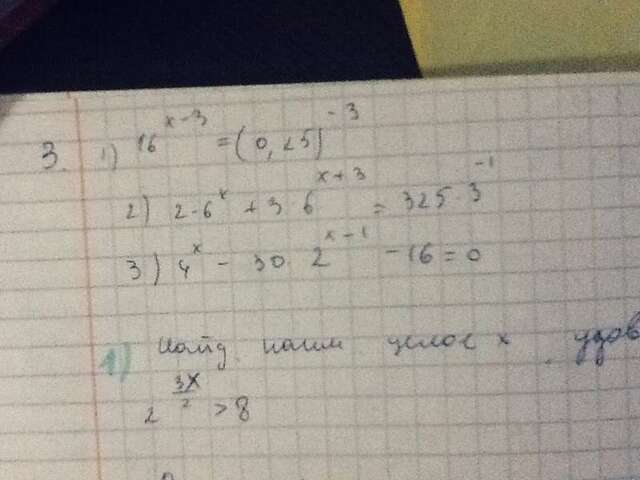 3. 1) 16^{x-3} = (0,25)^{-3}
2) 2·6^x + 3 6^{x+3} = 325·3^{-1}
3) 4^x - 30·2^{x-1} - 16 = 0
1) Найд наим целое x удов
2^{\frac{3x}{2}} > 8